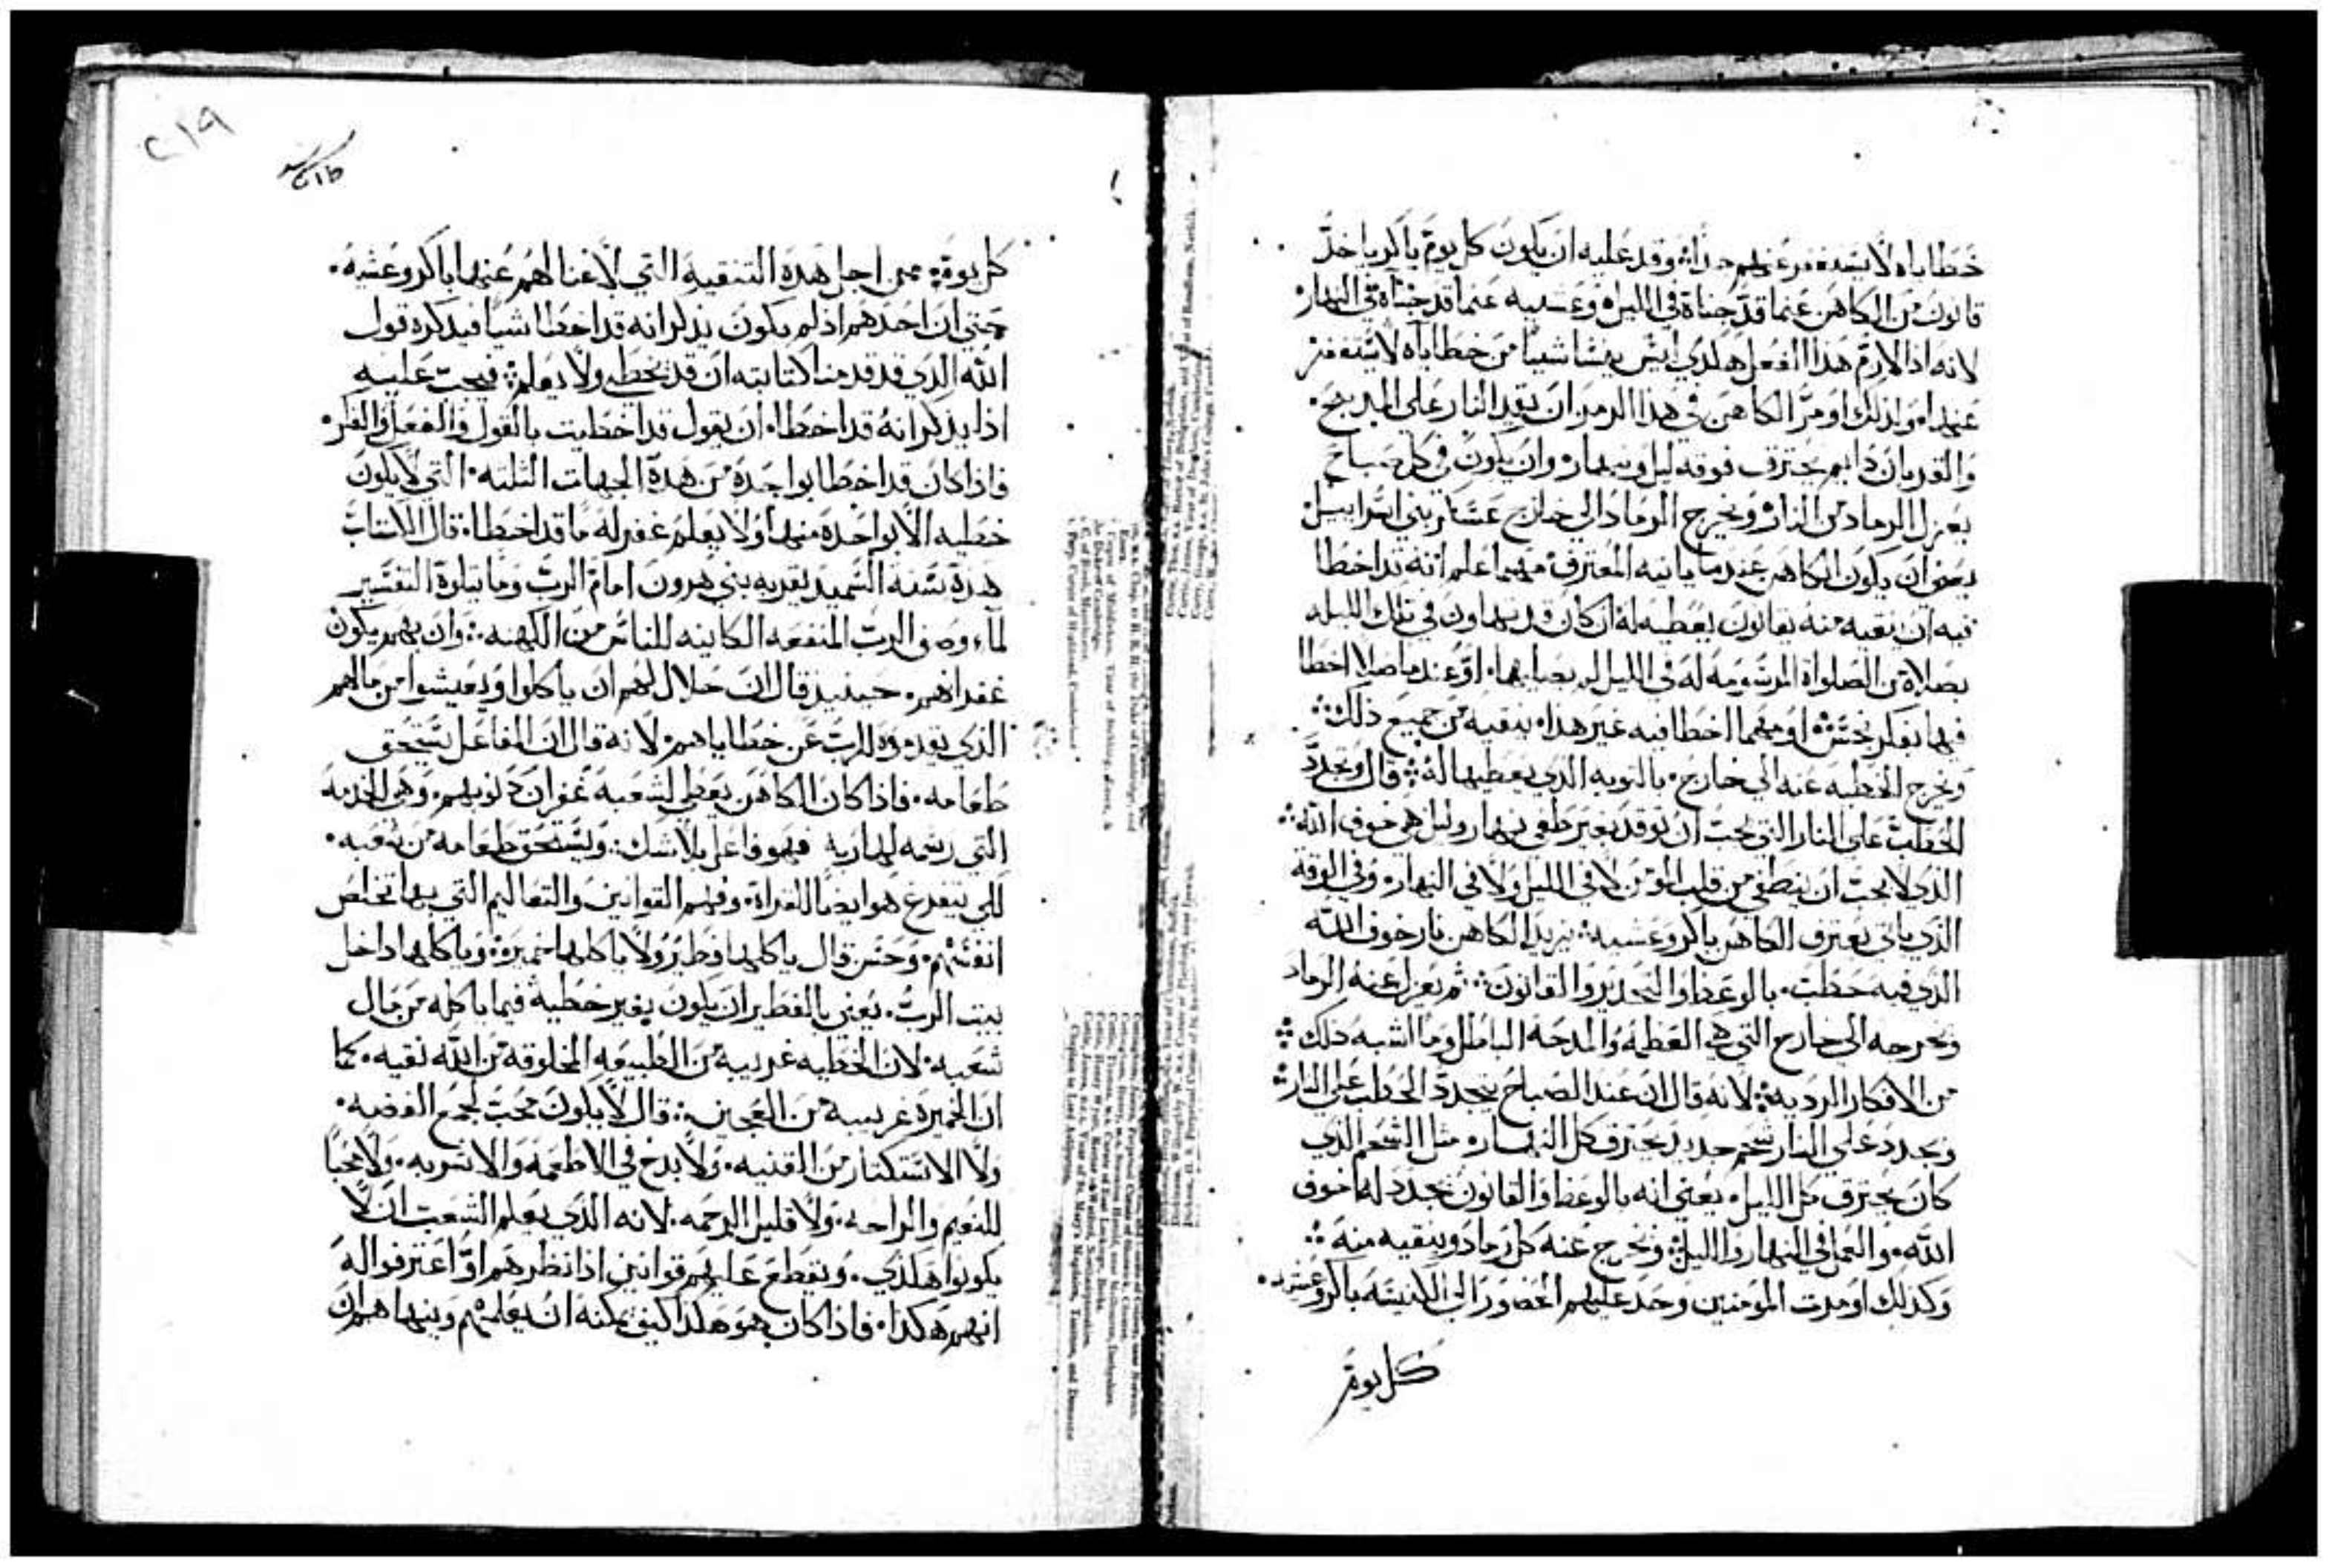 خطاياه لا يستغفر عنهم جدا وقد عليه ان يكون كل يوم باكر ياخد
قانون من الكاهن عنما قد جناه في الليل وعشيه عنما قد جناه في النهار
لانه اذا لازم هذا الفعل هلدي ليس ينسا شيا من خطاياه لا يستغفر
عنها ولذلك اومر الكاهن في هذا الرمز ان يقيد النار علي المدبح
والقربان دايم يحترق فوقه ليل ونهار وان يكون في كل صباح
يعزل الرماد من النار ويخرج الرماد الي خارج عسكر بني اسراييل
يعني ان يكون الكاهن عندما ياتيه المعترف مهما علم انه قد اخطا
فيه ان ينقيه منه بقانون يعطيه له ان كان قد تهاون في تلك الليله
بصلاه من الصلواة المرسومه له في الليل لم يصليها او عندما صلا اخطا
فيها بفكر نجس او مهما اخطا فيه غير هذا ينقيه من جميع ذلك
ويخرج الخطيه عنه الي خارج بالتوبه الذي يعطيها له قال ويجدد
الحطب علي النار التي يجب ان توقد بغير طفي نهار وليل هي خوف الله
الذي لا يجب ان ينطفي من قلب المومن لا في الليل ولا في النهار وفي الوقت
الذي ياتي يعترف الكاهن باكر وعشيه يزيد الكاهن نار خوف الله
الذي فيه حطب بالوعظ والتحذير والقانون ثم يعزل عنه الرماد
ويخرجه الي خارج التي هي العظمه والمدحه الباطل وما اشبه ذلك
من الافكار الرديه لانه قال ان عند الصباح يتجدد الحطب علي النار
ويجدد علي النار شحم جديد يحترق كل النهار مثل الشحم الذي
كان يحترق كل الليل يعني انه بالوعظ والقانون يجدد له خوف
الله والعمل في النهار والليل ويخرج عنه كل رماد وينقيه منه
وكذلك اومرت المومنين وحد عليهم الحضور الي الكنيسه باكر وعشيه
كل يوم
٢١٩
كل يوم من اجل هده التنقيه التي لا غنا لهم عنها باكر وعشيه
حتي ان احدهم اذ لم يكون يذكر انه قد اخطا شيا فيدكره قول
الله الذي قد قدمنا كتابته ان قد يخطي ولا يعلم فيجب عليه
اذا يذكر انه قد اخطا ان يقول قد اخطيت بالقول والفعل والفكر
فاذا كان قد اخطا بواحدة من هدة الجهات الثلثه التي لا يكون
خطيه الا بواحدة منها ولا يعلم غفر له ما قد اخطا قال الكتاب
هدة سنة السميد يقربه بني هرون امام الرب وما يتلوة التفسير
لما وصف الرب المنفعه الكاينه للناس من الكهنه وان بهم يكون
غفرانهم حينيد قال ان حلال لهم ان ياكلوا ويعيشوا من مالهم
الذي يقدموه للرب عن خطاياهم لانه قال ان الفاعل يستحق
طعامه فاذا كان الكاهن يعطي لشعبه غفران دنوبهم وهي الخدمه
التي رسمه لها ربه فهو فاعل بلا شك ويستحق طعامه من شعبه
لكي يتفرغ هو ايضا للقراة وفهم القوانين والتعاليم التي بها تخلص
انفسهم وحسن قال ياكلها فطير ولا ياكلها خميرة وياكلها داخل
بيت الرب يعني بالفطير ان يكون بغير خطية فيما ياكله من مال
شعبه لان الخطيه غريبه من الطبيعه المخلوقه من الله نقيه كما
ان الخميرة غريبه من العجين قال لا يكون محب لجمع الفضه
ولا الاستكتار من القنيه ولا بدخ في الاطعمه والاشربه ولا محبا
للنعيم والراحه ولا قليل الرحمه لانه الذي يعلم الشعب ان لا
يكونوا هلدي ويقطع عليهم قوانين اذا نظرهم او اعترفوا له
انهم هكدا فاذا كان هو هكدا كيف يمكنه ان يعلمهم وينهاهم ان